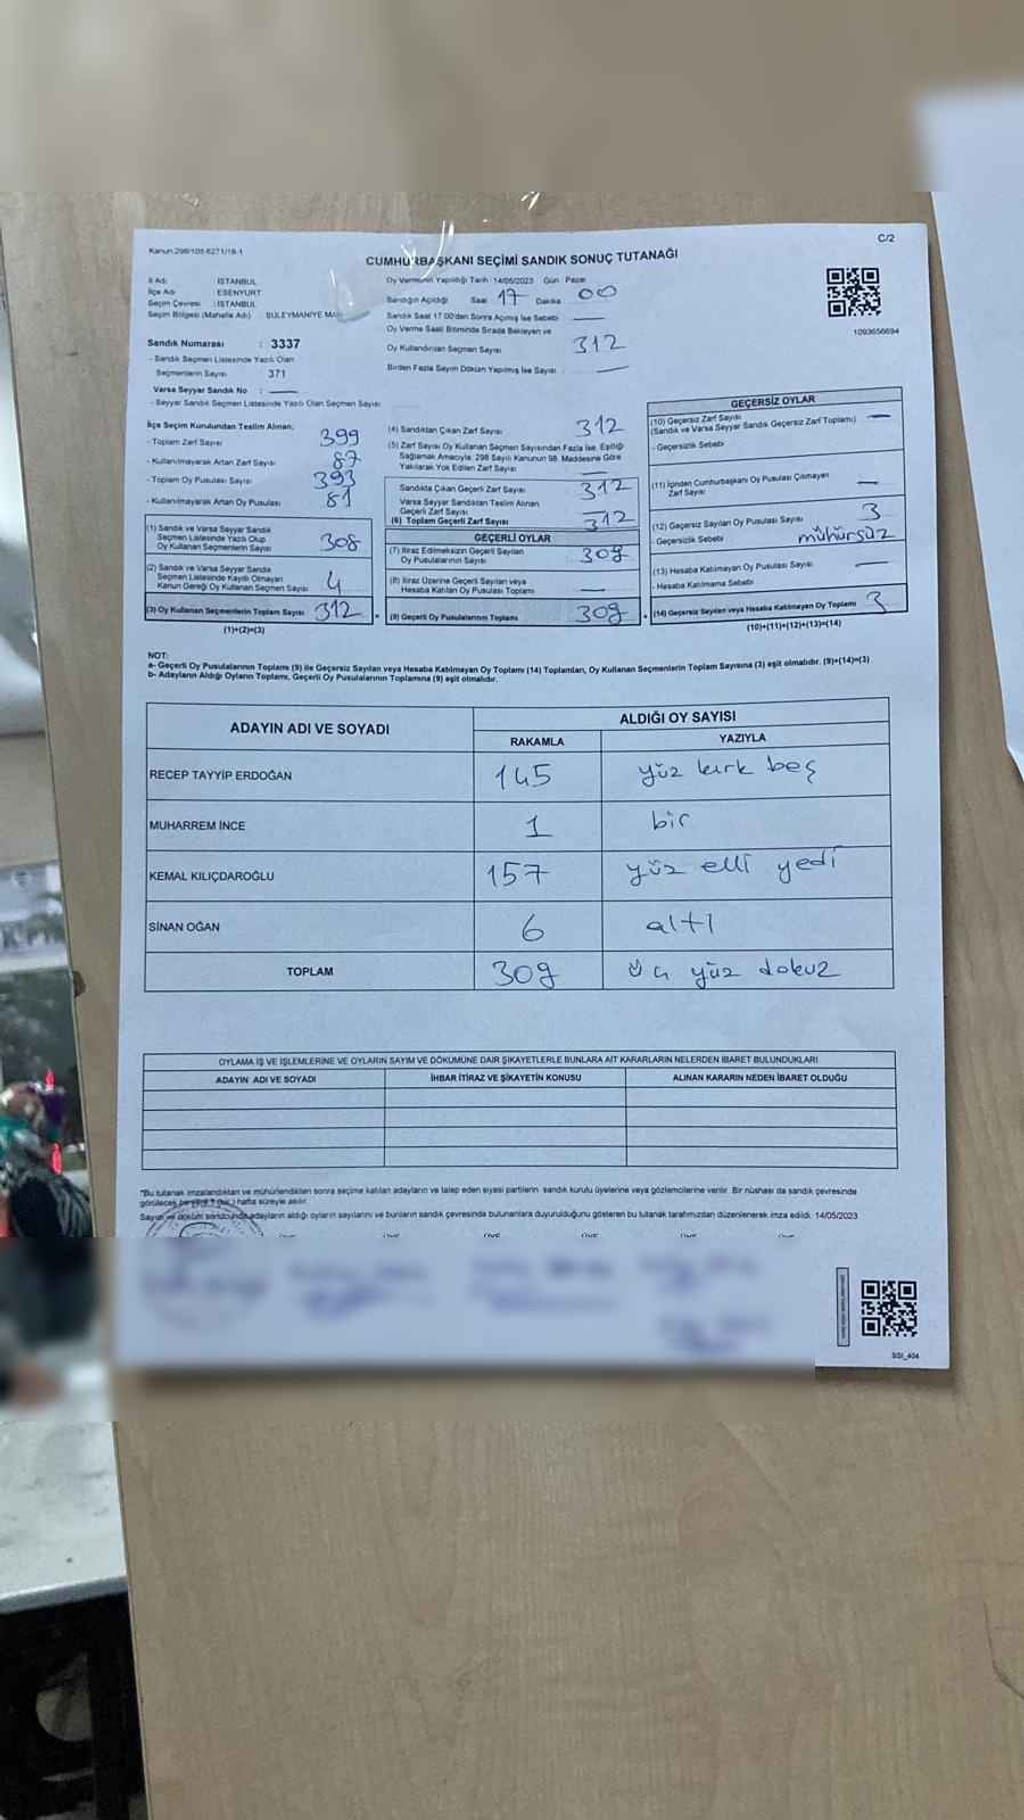 C/2
Kanun 298/105-6271/18-1
CUMHURBAŞKANI SEÇİMİ SANDIK SONUÇ TUTANAĞI
İl Adı : İSTANBUL
İlçe Adı : ESENYURT
Seçim Çevresi : İSTANBUL
Seçim Bölgesi (Mahalle Adı) : SÜLEYMANİYE
Sandık Numarası : 3337
- Sandık Seçmen Listesinde Yazılı Olan
Seçmenlerin Sayısı 371
Varsa Seyyar Sandık No :
- Seyyar Sandık Seçmen Listesinde Yazılı Olan Seçmen Sayısı
Oy Vermenin Yapıldığı Tarih :14/05/2023 Gün : Pazar
Sandığın Açıldığı Saat 17 Dakika 00
Sandık Saat 17:00'den Sonra Açılmış İse Sebebi
Oy Verme Saati Bitiminde Sırada Bekleyen ve
Oy Kullandırılan Seçmen Sayısı 312
Birden Fazla Sayım Döküm Yapılmış İse Sayısı
1093656694
İlçe Seçim Kurulundan Teslim Alınan;
- Toplam Zarf Sayısı 399
- Kullanılmayarak Artan Zarf Sayısı 87
- Toplam Oy Pusulası Sayısı 393
- Kullanılmayarak Artan Oy Pusulası 81
(1) Sandık ve Varsa Seyyar Sandık
Seçmen Listesinde Yazılı Olup
Oy Kullanan Seçmenlerin Sayısı 308
(2) Sandık ve Varsa Seyyar Sandık
Seçmen Listesinde Kayıtlı Olmayan
Kanun Gereği Oy Kullanan Seçmen Sayısı 4
(3) Oy Kullanan Seçmenlerin Toplam Sayısı 312
(1)+(2)=(3)
(4) Sandıktan Çıkan Zarf Sayısı 312
(5) Zarf Sayısı Oy Kullanan Seçmen Sayısından Fazla İse, Eşitliği
Sağlamak Amacıyla; 298 Sayılı Kanunun 98. Maddesine Göre
Yakılarak Yok Edilen Zarf Sayısı
Sandıkta Çıkan Geçerli Zarf Sayısı 312
Varsa Seyyar Sandıktan Teslim Alınan
Geçerli Zarf Sayısı
(6) Toplam Geçerli Zarf Sayısı 312
GEÇERLİ OYLAR
(7) İtiraz Edilmeksizin Geçerli Sayılan
Oy Pusulalarının Sayısı 309
(8) İtiraz Üzerine Geçerli Sayılan veya
Hesaba Katılan Oy Pusulası Toplamı
(9) Geçerli Oy Pusulalarının Toplamı 309
GEÇERSİZ OYLAR
(10) Geçersiz Zarf Sayısı
(Sandık ve Varsa Seyyar Sandık Geçersiz Zarf Toplamı)
- Geçersizlik Sebebi
(11) İçinden Cumhurbaşkanı Oy Pusulası Çıkmayan
Zarf Sayısı
(12) Geçersiz Sayılan Oy Pusulası Sayısı 3
- Geçersizlik Sebebi mühürsüz
(13) Hesaba Katılmayan Oy Pusulası Sayısı
- Hesaba Katılmama Sebebi
(14) Geçersiz Sayılan veya Hesaba Katılmayan Oy Toplamı 3
(10)+(11)+(12)+(13)=(14)
NOT:
a- Geçerli Oy Pusulalarının Toplamı (9) ile Geçersiz Sayılan veya Hesaba Katılmayan Oy Toplamı (14) Toplamları, Oy Kullanan Seçmenlerin Toplam Sayısına (3) eşit olmalıdır. (9)+(14)=(3)
b- Adayların Aldığı Oyların Toplamı, Geçerli Oy Pusulalarının Toplamına (9) eşit olmalıdır.
ADAYIN ADI VE SOYADI ALDIĞI OY SAYISI
RAKAMLA YAZIYLA
RECEP TAYYİP ERDOĞAN 145 yüz kırk beş
MUHARREM İNCE 1 bir
KEMAL KILIÇDAROĞLU 157 yüz elli yedi
SİNAN OĞAN 6 altı
TOPLAM 309 üç yüz dokuz
OYLAMA İŞ VE İŞLEMLERİNE VE OYLARIN SAYIM VE DÖKÜMÜNE DAİR ŞİKAYETLERLE BUNLARA AİT KARARLARIN NELERDEN İBARET BULUNDUKLARI
ADAYIN ADI VE SOYADI İHBAR İTİRAZ VE ŞİKAYETİN KONUSU ALINAN KARARIN NEDEN İBARET OLDUĞU
"Bu tutanak imzalandıktan ve mühürlendikten sonra seçime katılan adayların ve talep eden siyasi partilerin sandık kurulu üyelerine veya gözlemcilerine verilir. Bir nüshası da sandık çevresinde
görülecek hafta süreyle asılır.
Sayım ve döküm sonucunda adayların aldığı oyların sayılarını ve bunların sandık çevresinde bulunanlara duyurulduğunu gösteren bu tutanak tarafımızdan düzenlenerek imza edildi. 14/05/2023